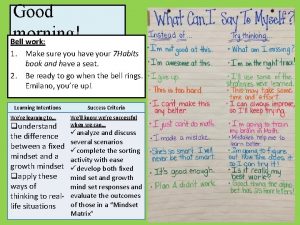 Good
morning!
Bell work:
1. Make sure you have your 7 Habits
book and have a seat.
2. Be ready to go when the bell rings.
Emilano, you're up!
Learning Intentions
Success Criteria
We're learning to…
understand
the difference
between a fixed
mindset and a
growth mindset
apply these
ways of
thinking to real-
life situations
We'll know we're successful
when you can…
analyze and discuss
several scenarios
complete the sorting
activity with ease
develop both fixed
mind set and growth
mind set responses and
evaluate the outcomes
of those in a "Mindset
Matrix"
What Can I Say To Myself?
Instead of...
Try thinking...
I'm not good at this.
What am I missing?
I'm awesome at this.
I'm on the right track!
I give up.
I'll use some of the
strategies we learned.
This is too hard
This may take some
time and effort.
I can't make this
any better.
I can always improve,
so I'll keep trying.
I just can't do math.
I'm going to train
my brain in Math.
I made a mistake.
Mistakes help me to
learn better.
She's so smart. I will
never be that smart.
I'm going to figure
out how she does it
It's good enough.
Is it really my
best work?
Plan A didn't work.
Good thing the alpha-
bet has 25 more letters!